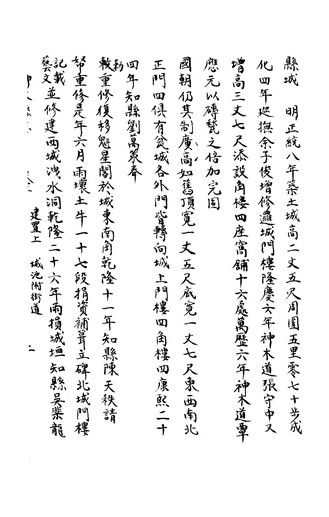 縣城　明正統八年築土城高二丈五尺周圍五里零七十步成
化四年廵撫余子俊增修邏城門樓隆慶六年神木道張守中又
增高三丈七尺添設角樓四座窩鋪十六處萬歷六年神木道覃
應元以磚甃之倍加完固
國朝仍其制廣高如舊頂寬一丈五尺底寬一丈七尺東西南北
正門四俱有瓮城各外門皆轉向城上門樓四角樓四康熙二十
四年知縣劉萬策奉
敕重修復移魁星閣於城東南角乾隆十一年知縣陳天秩請
帑重修是年六月雨壞土牛一十七段捐資補葺立碑北城門樓
記載藝文並修建西城洩水洞乾隆二十六年雨損城垣知縣吳棐龍
建置上　城池附街道